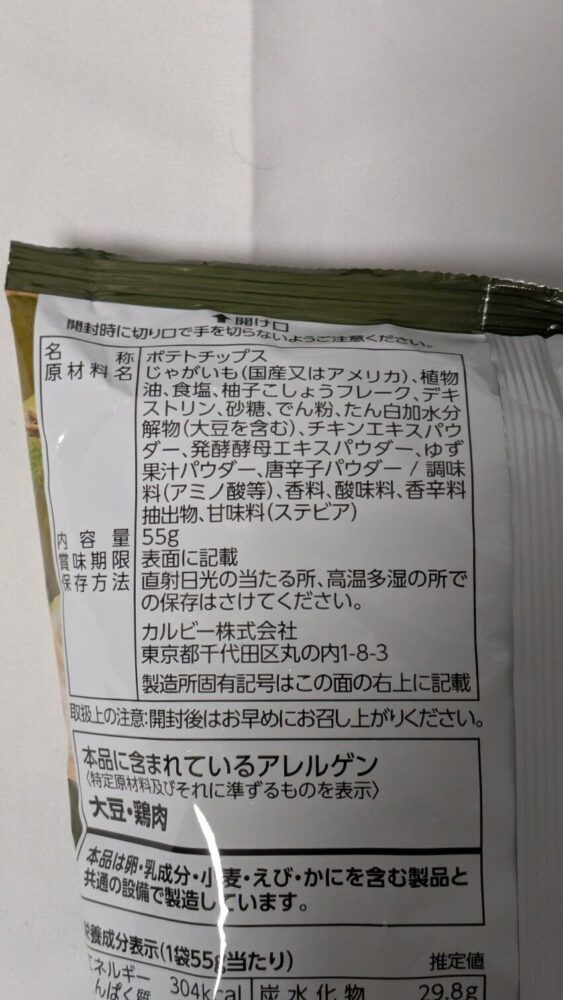 ⬆開け口
開封時に切り口で手を切らないようご注意ください。
名称 ポテトチップス
原材料名 じゃがいも(国産又はアメリカ)、植物
油、食塩、柚子こしょうフレーク、デキ
ストリン、砂糖、でん粉、たん白加水分
解物(大豆を含む)、チキンエキスパウ
ダー、発酵酵母エキスパウダー、ゆず
果汁パウダー、唐辛子パウダー / 調味
料(アミノ酸等)、香料、酸味料、香辛料
抽出物、甘味料(ステビア)
内容量 55g
賞味期限 表面に記載
保存方法 直射日光の当たる所、高温多湿の所で
の保存はさけてください。
カルビー株式会社
東京都千代田区丸の内1-8-3
製造所固有記号はこの面の右上に記載
取扱上の注意:開封後はお早めにお召し上がりください。
本品に含まれているアレルゲン
〈特定原材料及びそれに準ずるものを表示〉
大豆・鶏肉
本品は卵・乳成分・小麦・えび・かにを含む製品と
共通の設備で製造しています。
栄養成分表示(1袋55g当たり) 推定値
エネルギー 304kcal 炭水化物 29.8g
んぱく質